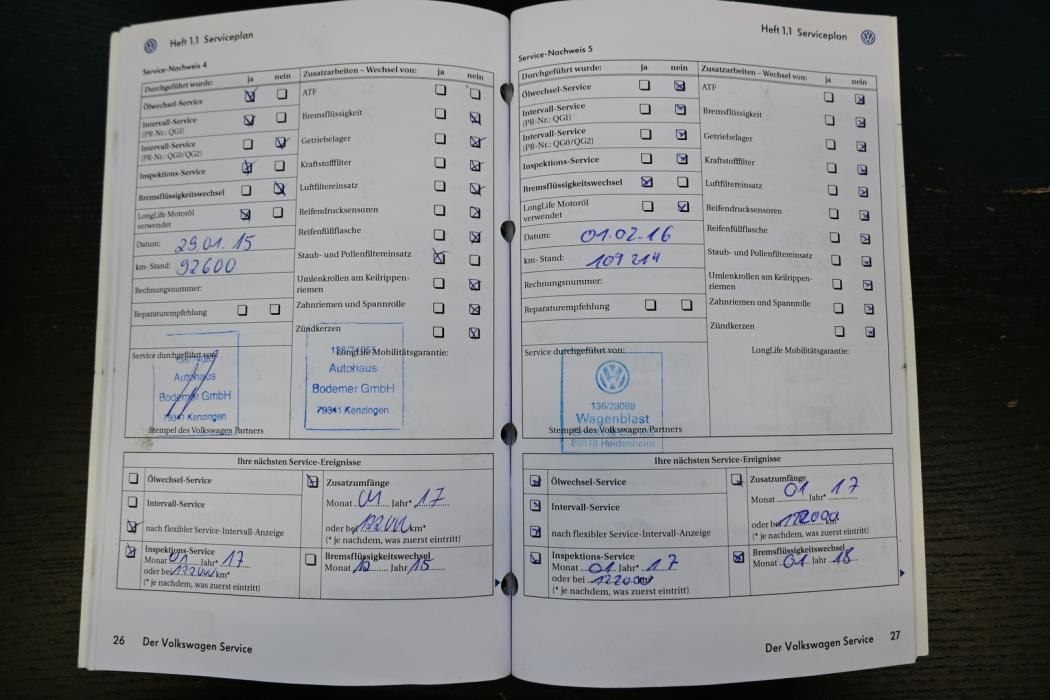 Heft 1.1 Serviceplan
Service-Nachweis 4
Durchgeführt wurde: ja nein
Ölwechsel-Service
Intervall-Service
(PR-Nr.: QG1)
Intervall-Service
(PR-Nr.: QG0/QG2)
Inspektions-Service
Bremsflüssigkeitswechsel
LongLife Motoröl
verwendet
Datum: 29.01.15
km- Stand: 92600
Rechnungsnummer:
Reparaturempfehlung
Zusatzarbeiten – Wechsel von: ja nein
ATF
Bremsflüssigkeit
Getriebelager
Kraftstofffilter
Luftfiltereinsatz
Reifendrucksensoren
Reifenfüllflasche
Staub- und Pollenfiltereinsatz
Umlenkrollen am Keilrippen-
riemen
Zahnriemen und Spannrolle
Zündkerzen
Service durchgeführt von:
Autohaus
Bodemer GmbH
79341 Kenzingen
Stempel des Volkswagen Partners
LongLife Mobilitätsgarantie:
Autohaus
Bodemer GmbH
79341 Kenzingen
Ihre nächsten Service-Ereignisse
Ölwechsel-Service
Intervall-Service
nach flexibler Service-Intervall-Anzeige
Inspektions-Service
Monat 01 Jahr* 17
oder bei km*
(* je nachdem, was zuerst eintritt)
Zusatzumfänge
Monat 01 Jahr* 17
oder bei km*
(* je nachdem, was zuerst eintritt)
Bremsflüssigkeitswechsel
Monat 12 Jahr 15
26 Der Volkswagen Service
Heft 1.1 Serviceplan
Service-Nachweis 5
Durchgeführt wurde: ja nein
Ölwechsel-Service
Intervall-Service
(PR-Nr.: QG1)
Intervall-Service
(PR-Nr.: QG0/QG2)
Inspektions-Service
Bremsflüssigkeitswechsel
LongLife Motoröl
verwendet
Datum: 01.02.16
km- Stand: 109214
Rechnungsnummer:
Reparaturempfehlung
Zusatzarbeiten – Wechsel von: ja nein
ATF
Bremsflüssigkeit
Getriebelager
Kraftstofffilter
Luftfiltereinsatz
Reifendrucksensoren
Reifenfüllflasche
Staub- und Pollenfiltereinsatz
Umlenkrollen am Keilrippen-
riemen
Zahnriemen und Spannrolle
Zündkerzen
Service durchgeführt von:
136/28088
Wagenblast
Heidenheim
Stempel des Volkswagen Partners
LongLife Mobilitätsgarantie:
Ihre nächsten Service-Ereignisse
Ölwechsel-Service
Intervall-Service
nach flexibler Service-Intervall-Anzeige
Inspektions-Service
Monat 01 Jahr* 17
oder bei 122000
(* je nachdem, was zuerst eintritt)
Zusatzumfänge
Monat 01 Jahr* 17
oder bei km*
(* je nachdem, was zuerst eintritt)
Bremsflüssigkeitswechsel
Monat 01 Jahr 18
Der Volkswagen Service 27